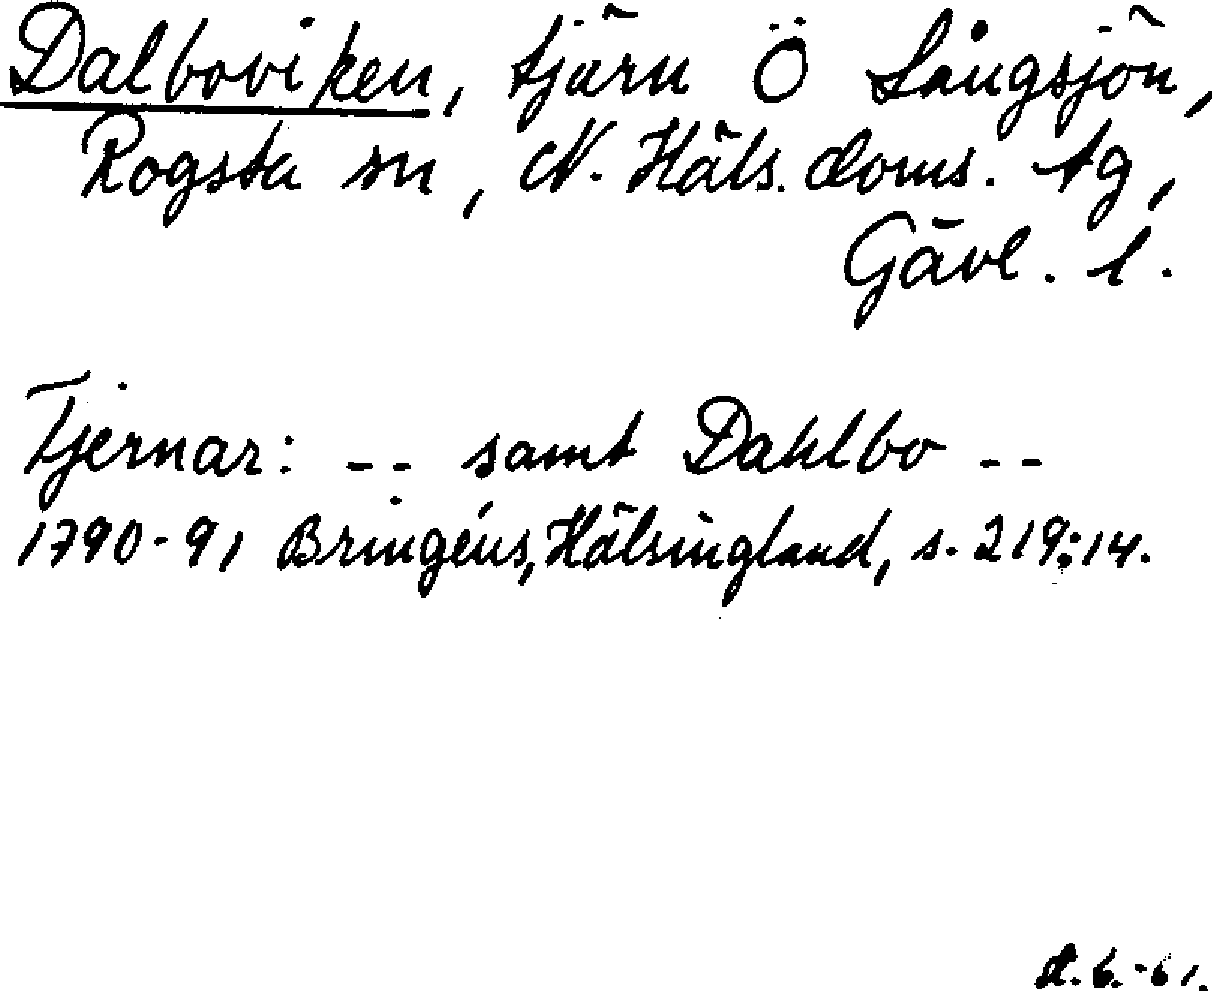 Dalboviken, tjärn Ö Långsjön,
Rogsta sn, N. Häls. doms. tg,
Gävl. l.
Tjernar: -- samt Dahlbo --
1790-91 Bringéus, Hälsingland, s. 219:14.